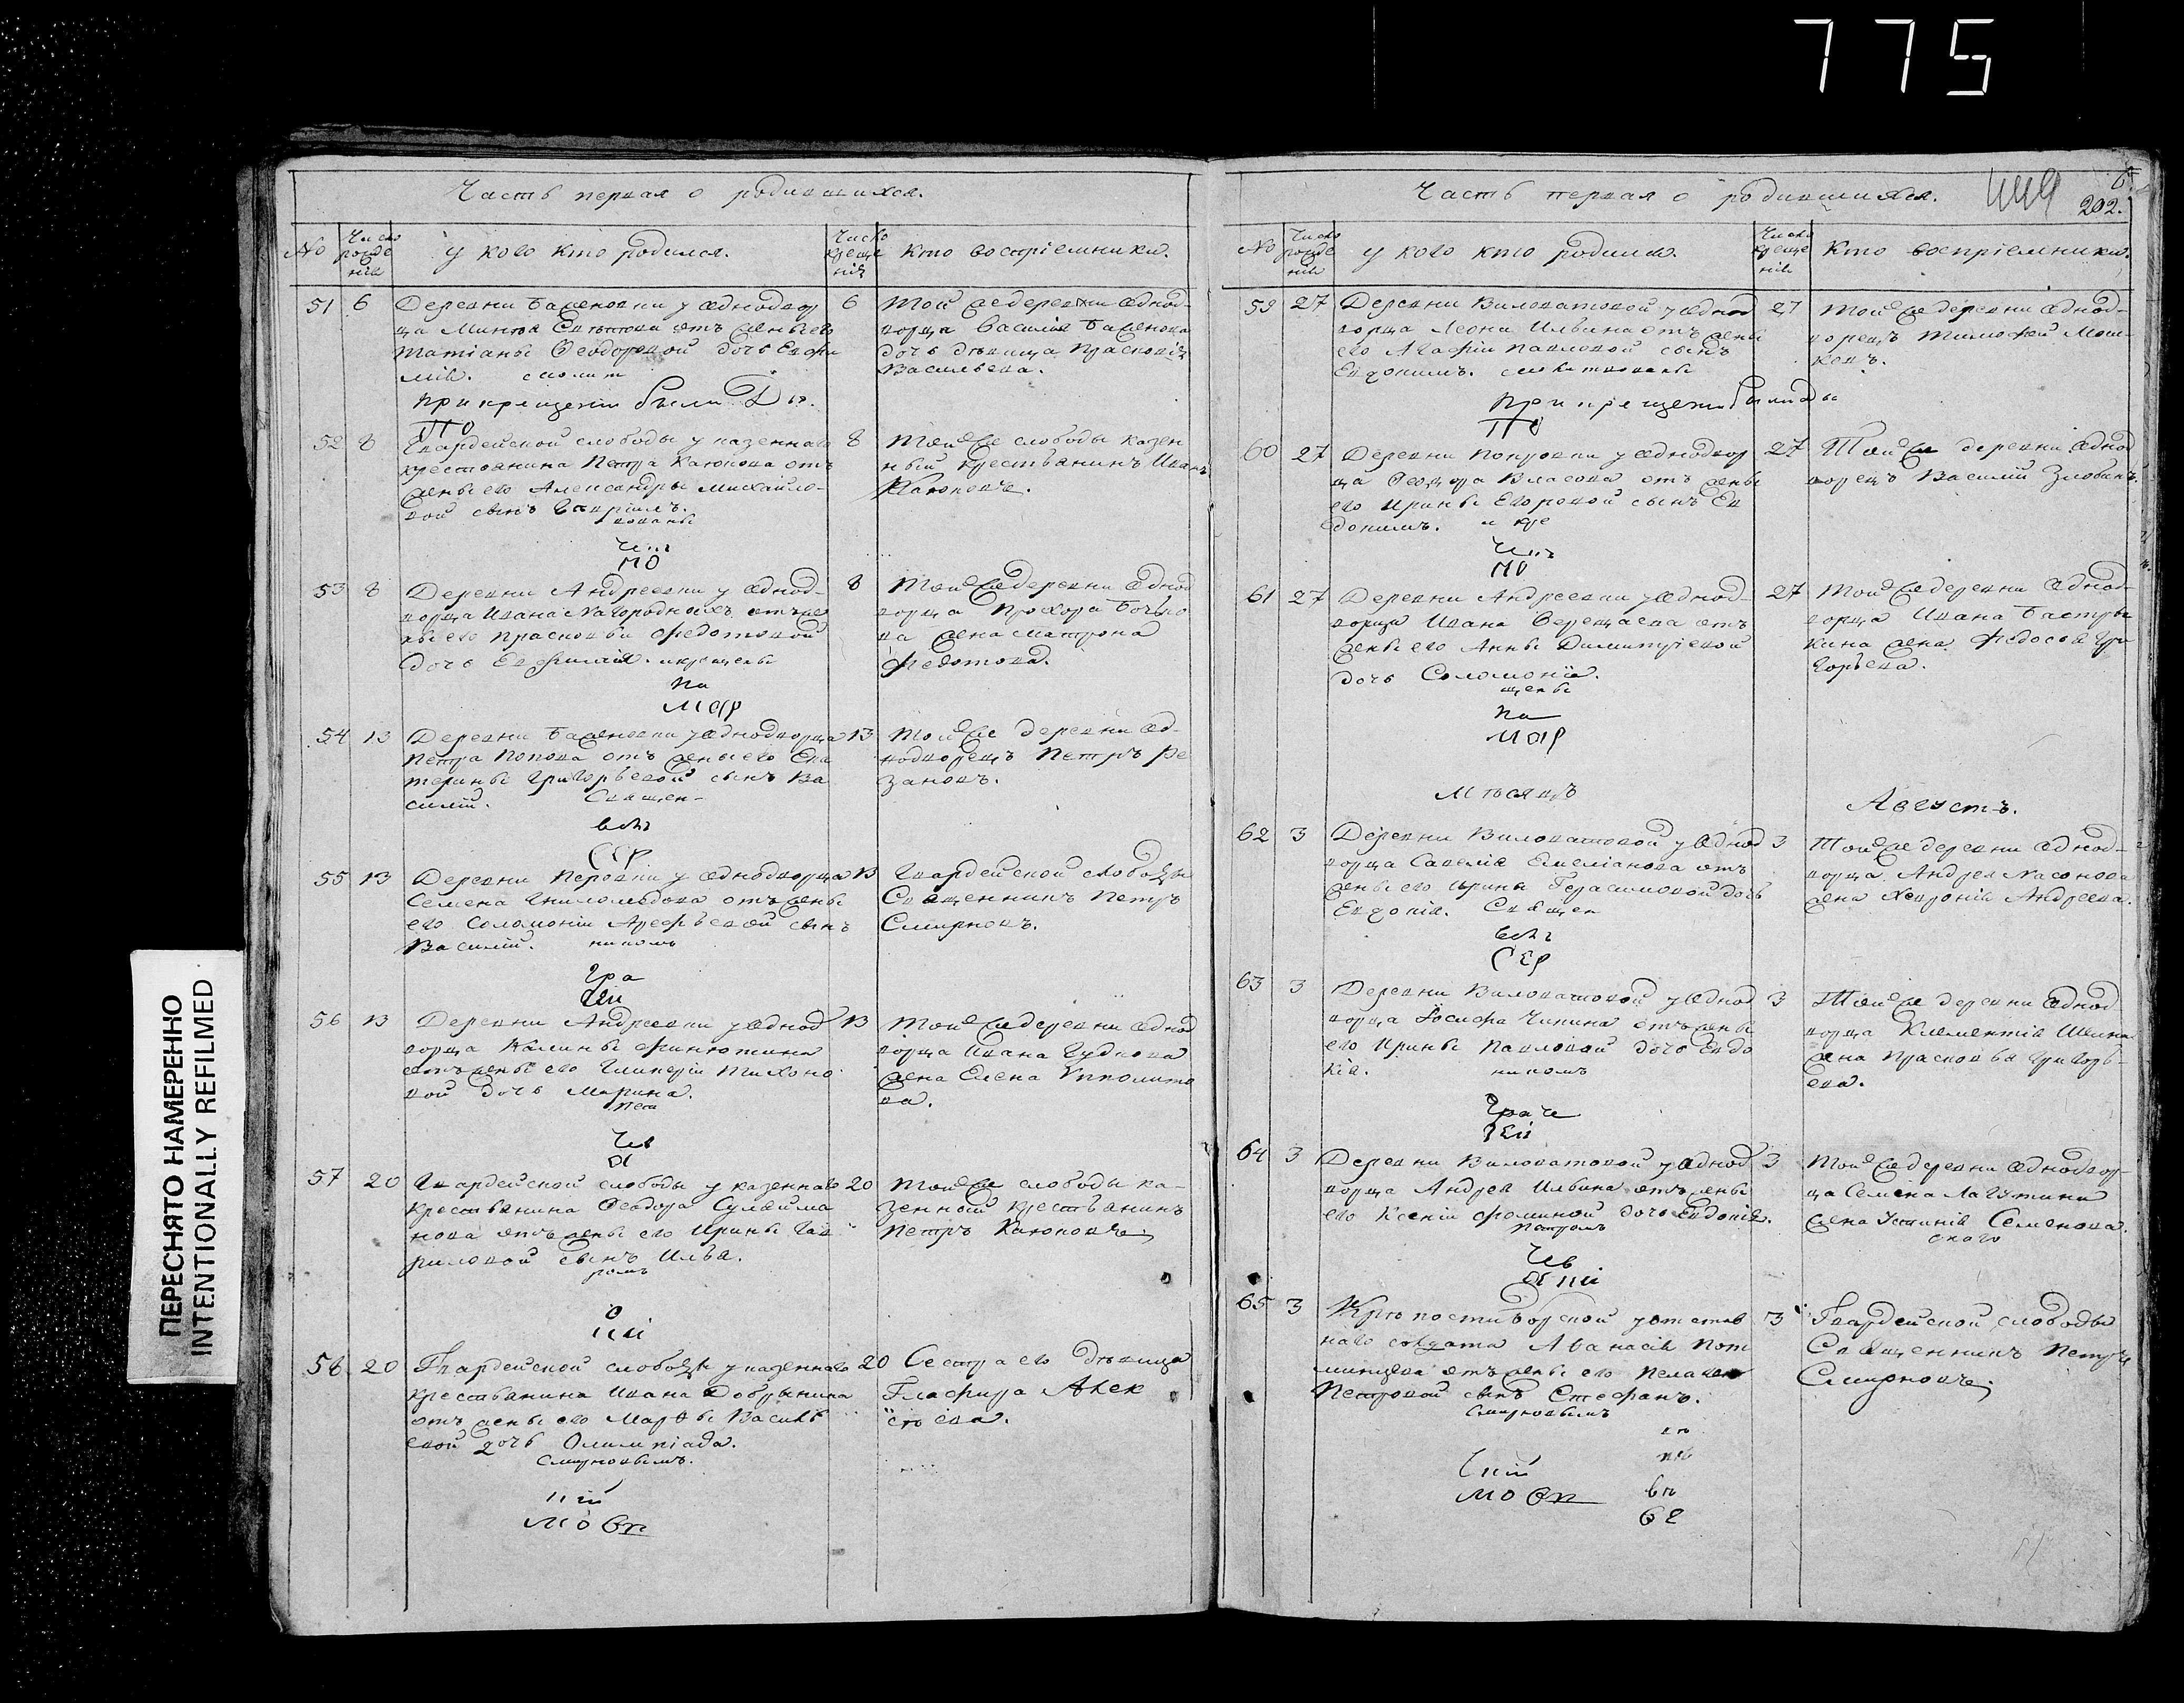 775
ПЕРЕСНЯТО НАМЕРЕННО
INTENTIONALLY REFILMED
Часть первая о родившихся.
No
Число рожденія
у кого кто родился.
Число крещенія
кто воспріемники.
51 6
Деревни Баженовки у однодвор
ца
Татіаны Ѳеодоровой дочь Евфи
мія.
6
Той же деревни однод-
ворца Василія Баженова
дочь дѣвица Прасковія
Васильева.
при крещеніи были
52 8
Гвардейской слободы у казеннаго
крестьянина Петра Каюкова отъ
жены его Александры Михайло-
вой сынъ Гавріилъ.
8
Той же слободы казен
ный крестьянинъ Иванъ
Каюковъ.
53 8
Деревни Андреевки у однод-
ворца Ивана Нагороднихъ отъ же
ны его Прасковьи Федотовой
дочь Евфимія.
8
Той же деревни однод
ворца Прохора
жена Матрона
Федотова.
54 13
Деревни Баженовки у однодворца
Петра Попова отъ жены его Ека
терины Григорьевой сынъ Ва
силій.
13
Той же деревни од-
нодворецъ Петръ Ре
зановъ.
55 13
Деревни Перовки у однодворца
Семена Гниломедова отъ жены
его Соломоніи Арефьевой сынъ
Василій.
13
Гвардейской слободы
Священникъ Петръ
Смирновъ.
56 13
Деревни Андреевки у однод
ворца Калины Финютина
отъ жены его Гликеріи Тихоно
вой дочь Марина.
13
Той же деревни однод
ворца Ивана Гуднова
жена Елена Ипполито
ва.
57 20
Гвардейской слободы у казеннаго
крестьянина Ѳеодора Сулейма
нова отъ жены его Ирины Гав
риловой сынъ Илья.
20
Той же слободы ка-
зенный крестьянинъ
Петръ Каюковъ.
58 20
Гвардейской слободы у казеннаго
крестьянина Ивана Добрынина
отъ жены его Марѳы Василь
евой дочь Олимпіада.
Смирновымъ.
20
Сестра его дѣвица
Глафира Алек
сѣева.
Часть первая о родившихся.
202.
No
Число рожденія
у кого кто родился.
Число крещенія
Кто воспріемники.
59 27
Деревни Виловатовой у однод
ворца Леона Ильина отъ жены
его Агафіи Павловой сынъ
Евдокимъ.
27
Той же деревни однод-
ворецъ Тимофей Мош-
ковъ.
при крещеніи были
60 27
Деревни Покровки у однодвор
ца Ѳеодора Власова отъ жены
его Ирины Егоровой сынъ Ев
докимъ.
27
Той же деревни однод
ворецъ Василій Зловинъ.
61 27
Деревни Андреевки у однод-
ворца Ивана Верещаева отъ
жены его Анны Димитріевой
дочь Соломонія.
27
Той же деревни однод-
ворца Ивана Бастры
кина жена Федосья Гри
горьева.
Мѣсяцъ
Августъ.
62 3
Деревни Виловатовой у однод
ворца Савелія Емеліанова отъ
жены его Ирины Герасимовой дочь
Евдокія. Священ
3
Той же деревни однод-
ворца Андрея Насонова
жена Хевронія Андреева.
63 3
Деревни Виловатовой у однод
ворца Іосифа Чикина отъ жены
его Ирины Павловой дочь Евдо
кія. никомъ
3
Той же деревни однод
ворца Климентія Шеина
жена Прасковья Григорь-
ева.
64 3
Деревни Виловатовой у однод
ворца Андрея Ильина отъ жены
его Ксеніи Фоминой дочь Евдокія.
Петромъ
3
Той же деревни однодвор-
ца Семена Лагутина
жена Устинія Семенова.
65 3
Крѣпости Борской у отстав
наго солдата Аѳанасія
отъ жены его Пелагеи
Петровой сынъ Стефанъ.
Смирновымъ
3
Гвардейской слободы
Священникъ Петръ
Смирновъ.